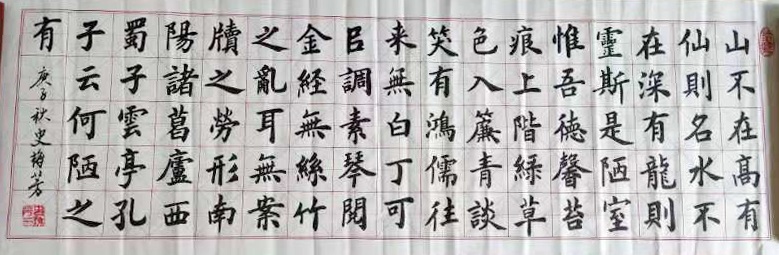 山不在高有
仙則名水不
在深有龍則
靈斯是陋室
惟吾德馨苔
痕上階緑草
色入簾青談
笑有鴻儒往
来無白丁可
㠯調素琴閱
金経無絲竹
之亂耳無案
牘之勞形南
陽諸葛廬西
蜀子雲亭孔
子云何陋之
有
庚子秋史梅芳